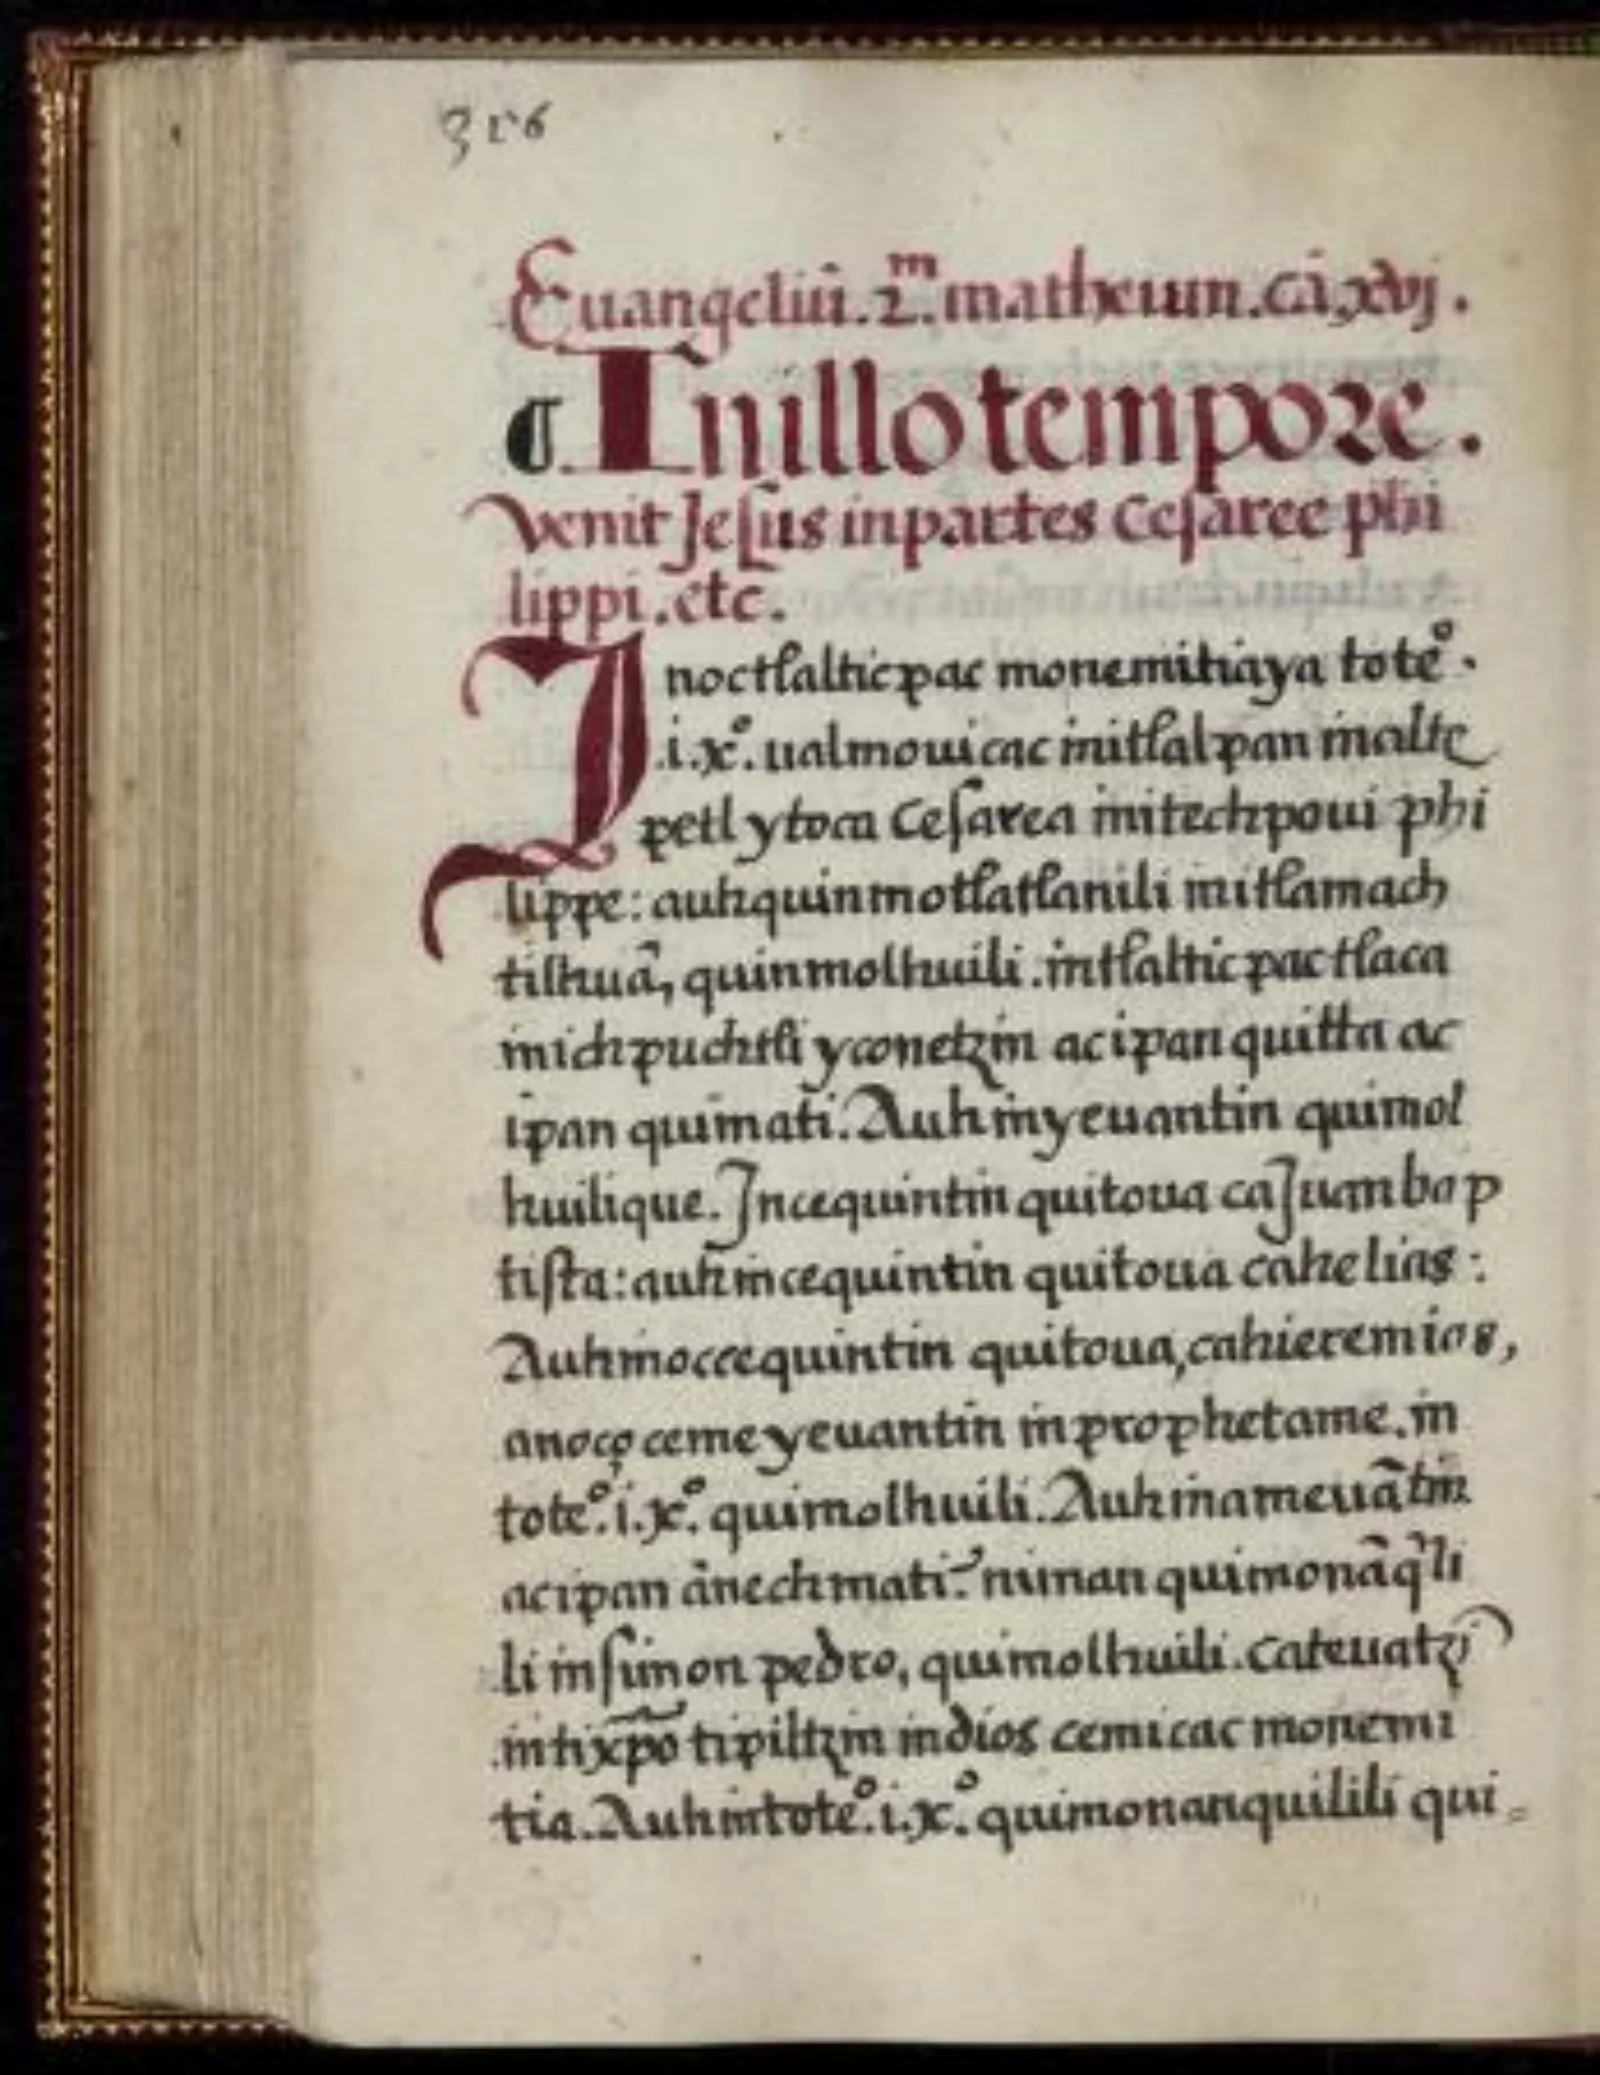 356
Euangeliū. 2.ᵐ matheum. cā. xvj.
¶ Inillo tempore.
venit Jesus inpartes cesaree phi
lippi. etc.
Inoctlalticpac monemitiaya toteº.
.i.xº. ualmouicac initlalpan inalte
petl ytoca Cesarea initechpoui phi
lippe: auhquinmotlatlanili initlamach
tilhuā, quinmolhuili. intlalticpactlaca
inichpuchtli yconetzin acipanquitta ac
ipan quimati. Auhinyeuantin quimol
huilique. Incequintin quitoua ca Juan bap
tista: auhincequintin quitoua cahelias:
Auhinoccequintin quitoua, cahieremias,
anoço ceme yeuantin inprophetame. in
toteº. i.xº. quimolhuili. Auhinameuātin
acipan ānechmati? niman quimonāqⁱli
li insimon pedro, quimolhuili. cateuatzī
intixp̄o tipiltzin indios cemicac monemi
tia. Auhintoteº. i.xº. quimonanquilili qui=